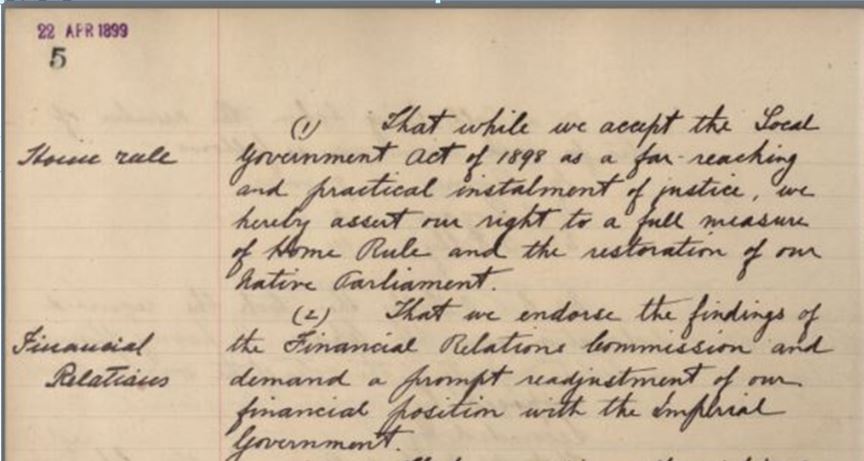 22 APR 1899
5
(1) That while we accept the Local
Home rule
Government Act of 1898 as a far-reaching
and practical instalment of justice, we
hereby assert our right to a full measure
of Home Rule and the restoration of our
Native Parliament.
(2) That we endorse the findings of
Financial
the Financial Relations Commission and
Relations
demand a prompt readjustment of our
financial position with the Imperial
Government.